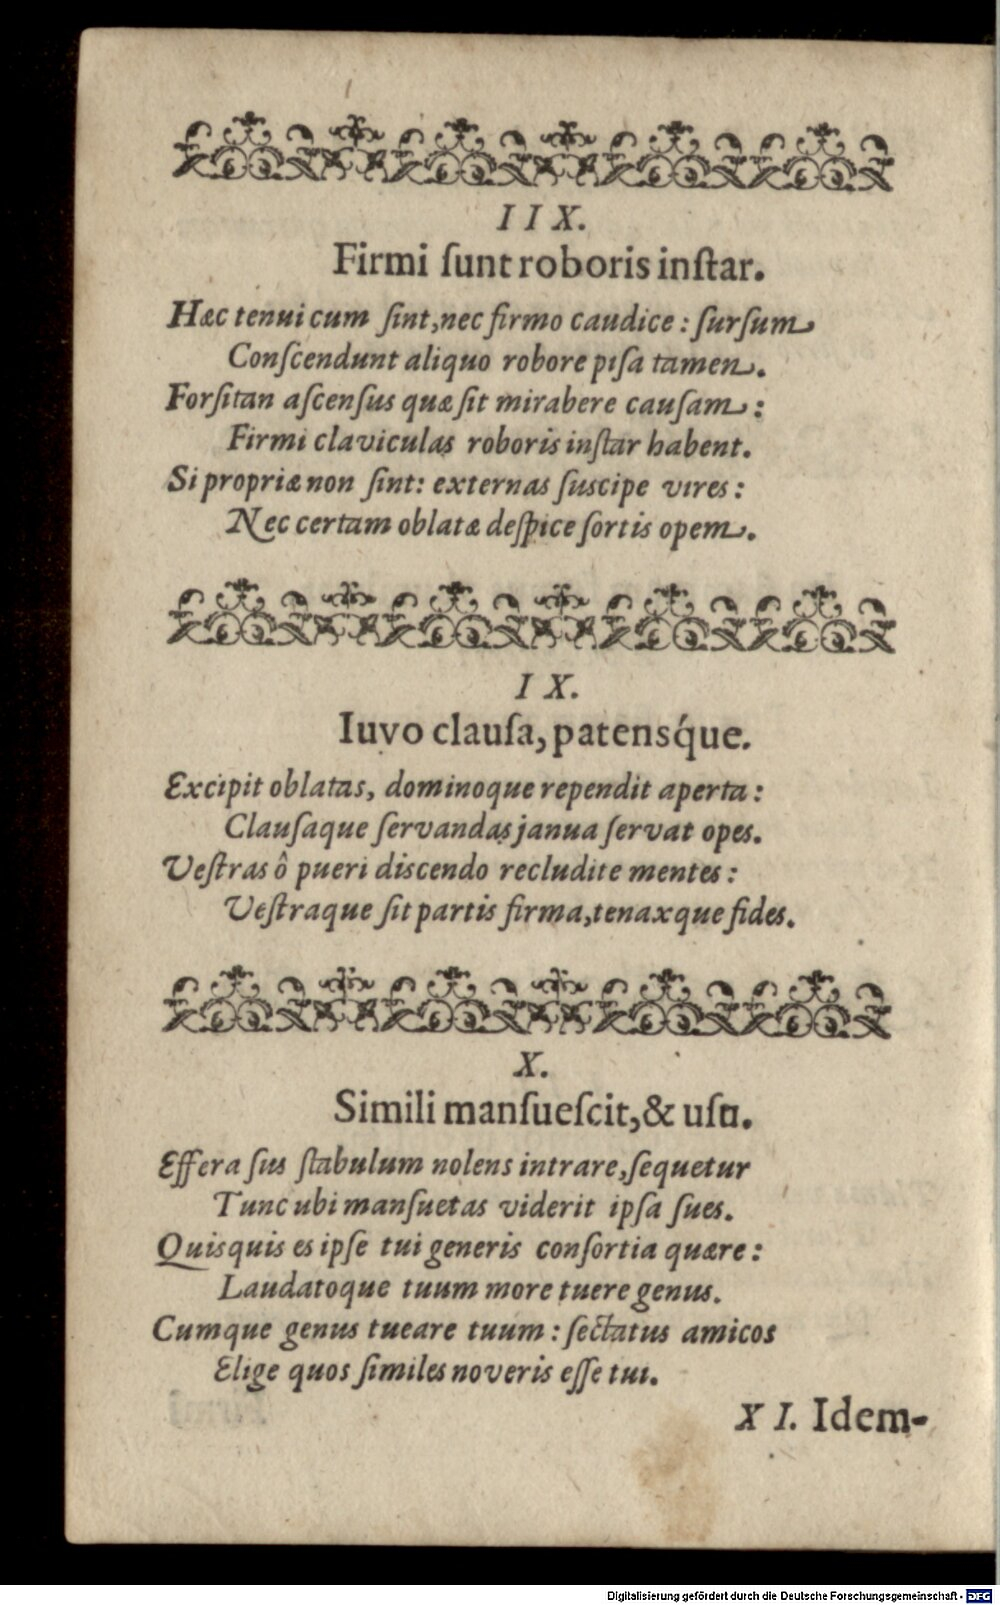 I I X.
Firmi ſunt roboris inſtar.
Hæc tenui cum ſint, nec firmo caudice: ſurſum
Conſcendunt aliquo robore piſa tamen.
Forſitan aſcenſus quæ ſit mirabere cauſam:
Firmi claviculas roboris inſtar habent.
Si propriæ non ſint: externas ſuscipe vires:
Nec certam oblatæ deſpice ſortis opem.
I X.
Iuvo clauſa, patensq́ue.
Excipit oblatas, dominoque rependit aperta:
Clauſaque ſervandas janua ſervat opes.
Veſtras ô pueri discendo recludite mentes:
Veſtraque ſit partis firma, tenaxque fides.
X.
Simili manſueſcit, & uſu.
Effera ſus ſtabulum nolens intrare, ſequetur
Tunc ubi manſuetas viderit ipſa ſues.
Quisquis es ipſe tui generis conſortia quære:
Laudatoque tuum more tuere genus.
Cumque genus tueare tuum: ſectatus amicos
Elige quos ſimiles noveris eſſe tui.
X I. Idem-
Digitalisierung gefördert durch die Deutsche Forschungsgemeinschaft - DFG